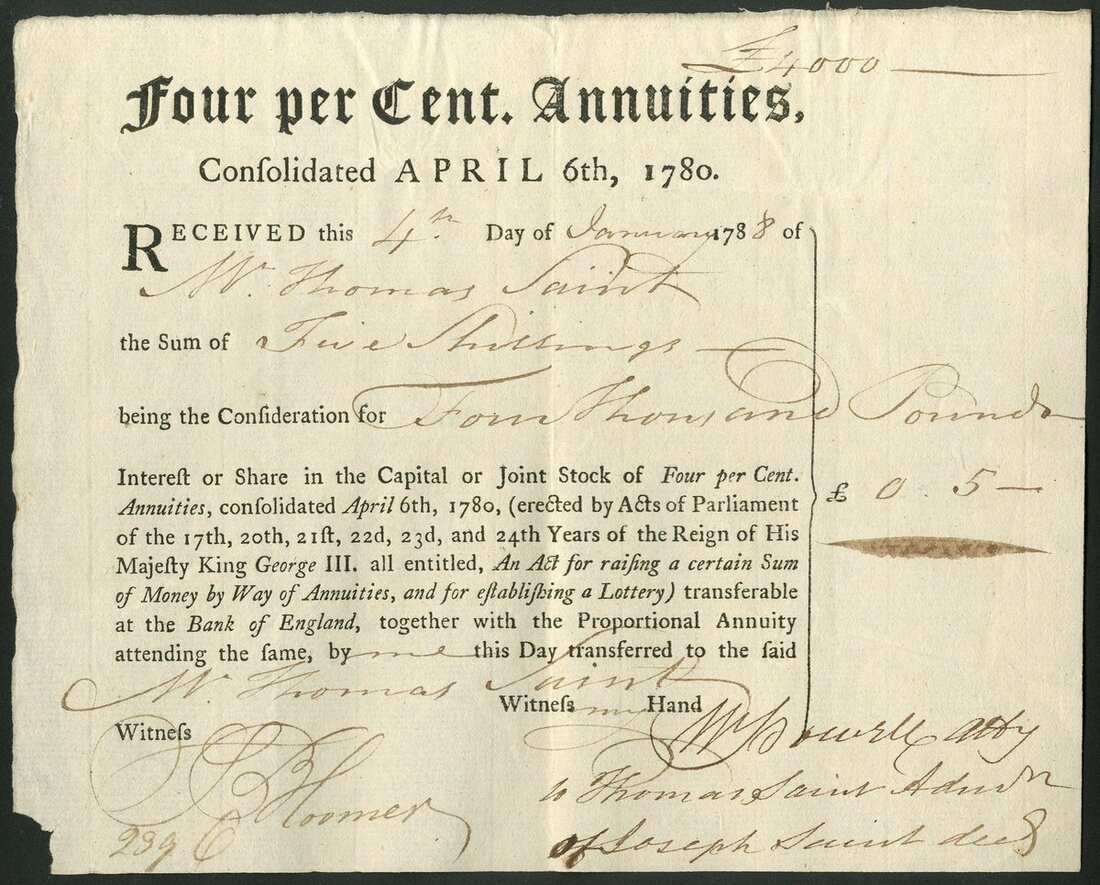 £4000
Four per Cent. Annuities,
Conſolidated APRIL 6th, 1780.
RECEIVED this 4th Day of January 1788 of
Mr Thomas Saint
the Sum of Five Shillings
being the Conſideration for Four Thousand Pounds
Intereſt or Share in the Capital or Joint Stock of Four per Cent.
Annuities, conſolidated April 6th, 1780, (erected by Acts of Parliament
of the 17th, 20th, 21ſt, 22d, 23d, and 24th Years of the Reign of His
Majeſty King George III. all entitled, An Act for raiſing a certain Sum
of Money by Way of Annuities, and for eſtabliſhing a Lottery) transferable
at the Bank of England, together with the Proportional Annuity
attending the ſame, by me this Day transferred to the ſaid
£ 0 . 5 —
Mr Thomas Saint
Witneſs my Hand
Witneſs
Wm Dowell Atty
to Thomas Saint Admr
of Joseph Saint decd
239